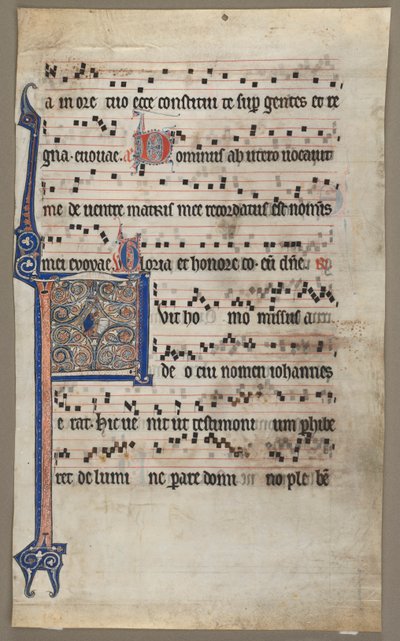 a in ore tuo ecce constitui te sup gentes et re
gna. euouae. a Dominus ab utero uocauit
me de uentre matris mee recordatus est nominis
mei euouae Gloria et honore co. eū dñe. R
Fuit ho mo missus a
de o cui nomen iohannes
e rat. Hic ue nit ut testimoni um phibe
ret de lumi ne parare domi no ple bē